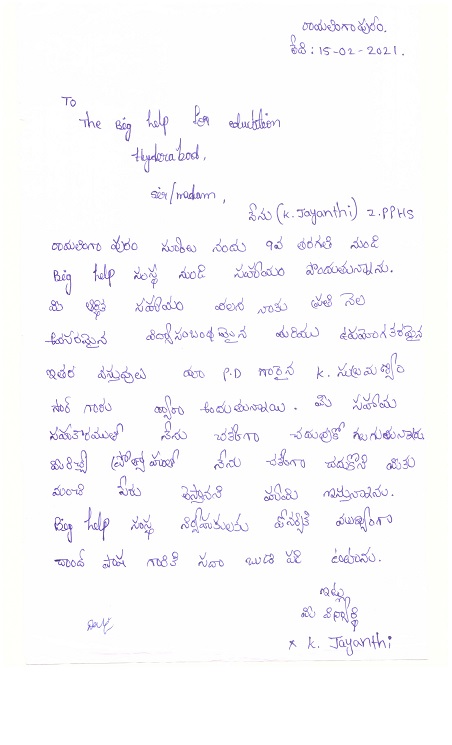 రాయలింగా పురం.
తేది : 15-02-2021.
To
The Big help for eductition
Hyderabad.
sir/madam,
నేను (K. Jayanthi) Z.PPHS
రాయలింగా పురం నందు 9వ తరగతి నుండి
Big help సంస్థ నుండి సహాయం పొందుతున్నాను.
మీ ఆర్థిక సహాయం వలన నాకు ప్రతి నెల
అవసరమైన విద్యా సంబంధమైన మరియు
ఇతర వస్తువులు మా P.D గారైన K. సుబ్రమణ్యం
సార్ గారు ద్వారా అందుతున్నాయి. మీ సహాయ
సహకారముతో నేను చక్కగా చదువుకో గలుగుతున్నాను
మీరిచ్చే ప్రోత్సాహంతో నేను చక్కగా చదుకొని మీకు
మంచి పేరు తెస్తానని హామి ఇస్తున్నాను.
Big help సంస్థ నిర్వాహకులకు
చాంద్ పాష గారికి సదా బుణ పడి ఉంటాను.
ఇట్లు
మీ విద్యార్థి
x K. Jayanthi